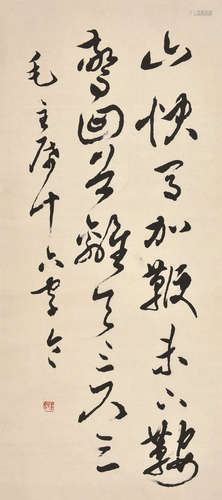 山快马加鞭未下鞍
惊回首离天三尺三
毛主席十六字令